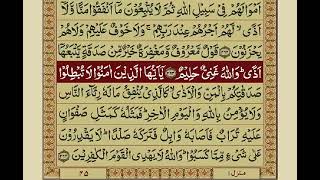 اَمْوَالَهُمْ فِیْ سَبِیْلِ اللّٰهِ ثُمَّ لَا یُتْبِعُوْنَ مَاۤ اَنْفَقُوْا مَنًّا وَّلَاۤ
اَذًیۙ لَّهُمْ اَجْرُهُمْ عِنْدَ رَبِّهِمْۚ وَلَا خَوْفٌ عَلَیْهِمْ وَلَا هُمْ
یَحْزَنُوْنَ قَوْلٌ مَّعْرُوْفٌ وَّمَغْفِرَةٌ خَیْرٌ مِّنْ صَدَقَةٍ یَّتْبَعُهَاۤ
اَذًیؕ وَاللّٰهُ غَنِیٌّ حَلِیْمٌ یٰۤاَیُّهَا الَّذِیْنَ اٰمَنُوْا لَا تُبْطِلُوْا
صَدَقٰتِكُمْ بِالْمَنِّ وَالْاَذٰیۙ كَالَّذِیْ یُنْفِقُ مَالَهٗ رِئَآءَ النَّاسِ
وَلَا یُؤْمِنُ بِاللّٰهِ وَالْیَوْمِ الْاٰخِرِؕ فَمَثَلُهٗ كَمَثَلِ صَفْوَانٍ
عَلَیْهِ تُرَابٌ فَاَصَابَهٗ وَابِلٌ فَتَرَكَهٗ صَلْدًاؕ لَا یَقْدِرُوْنَ
عَلٰی شَیْءٍ مِّمَّا كَسَبُوْاؕ وَاللّٰهُ لَا یَهْدِی الْقَوْمَ الْكٰفِرِیْنَ
۴۵ منزل ۱